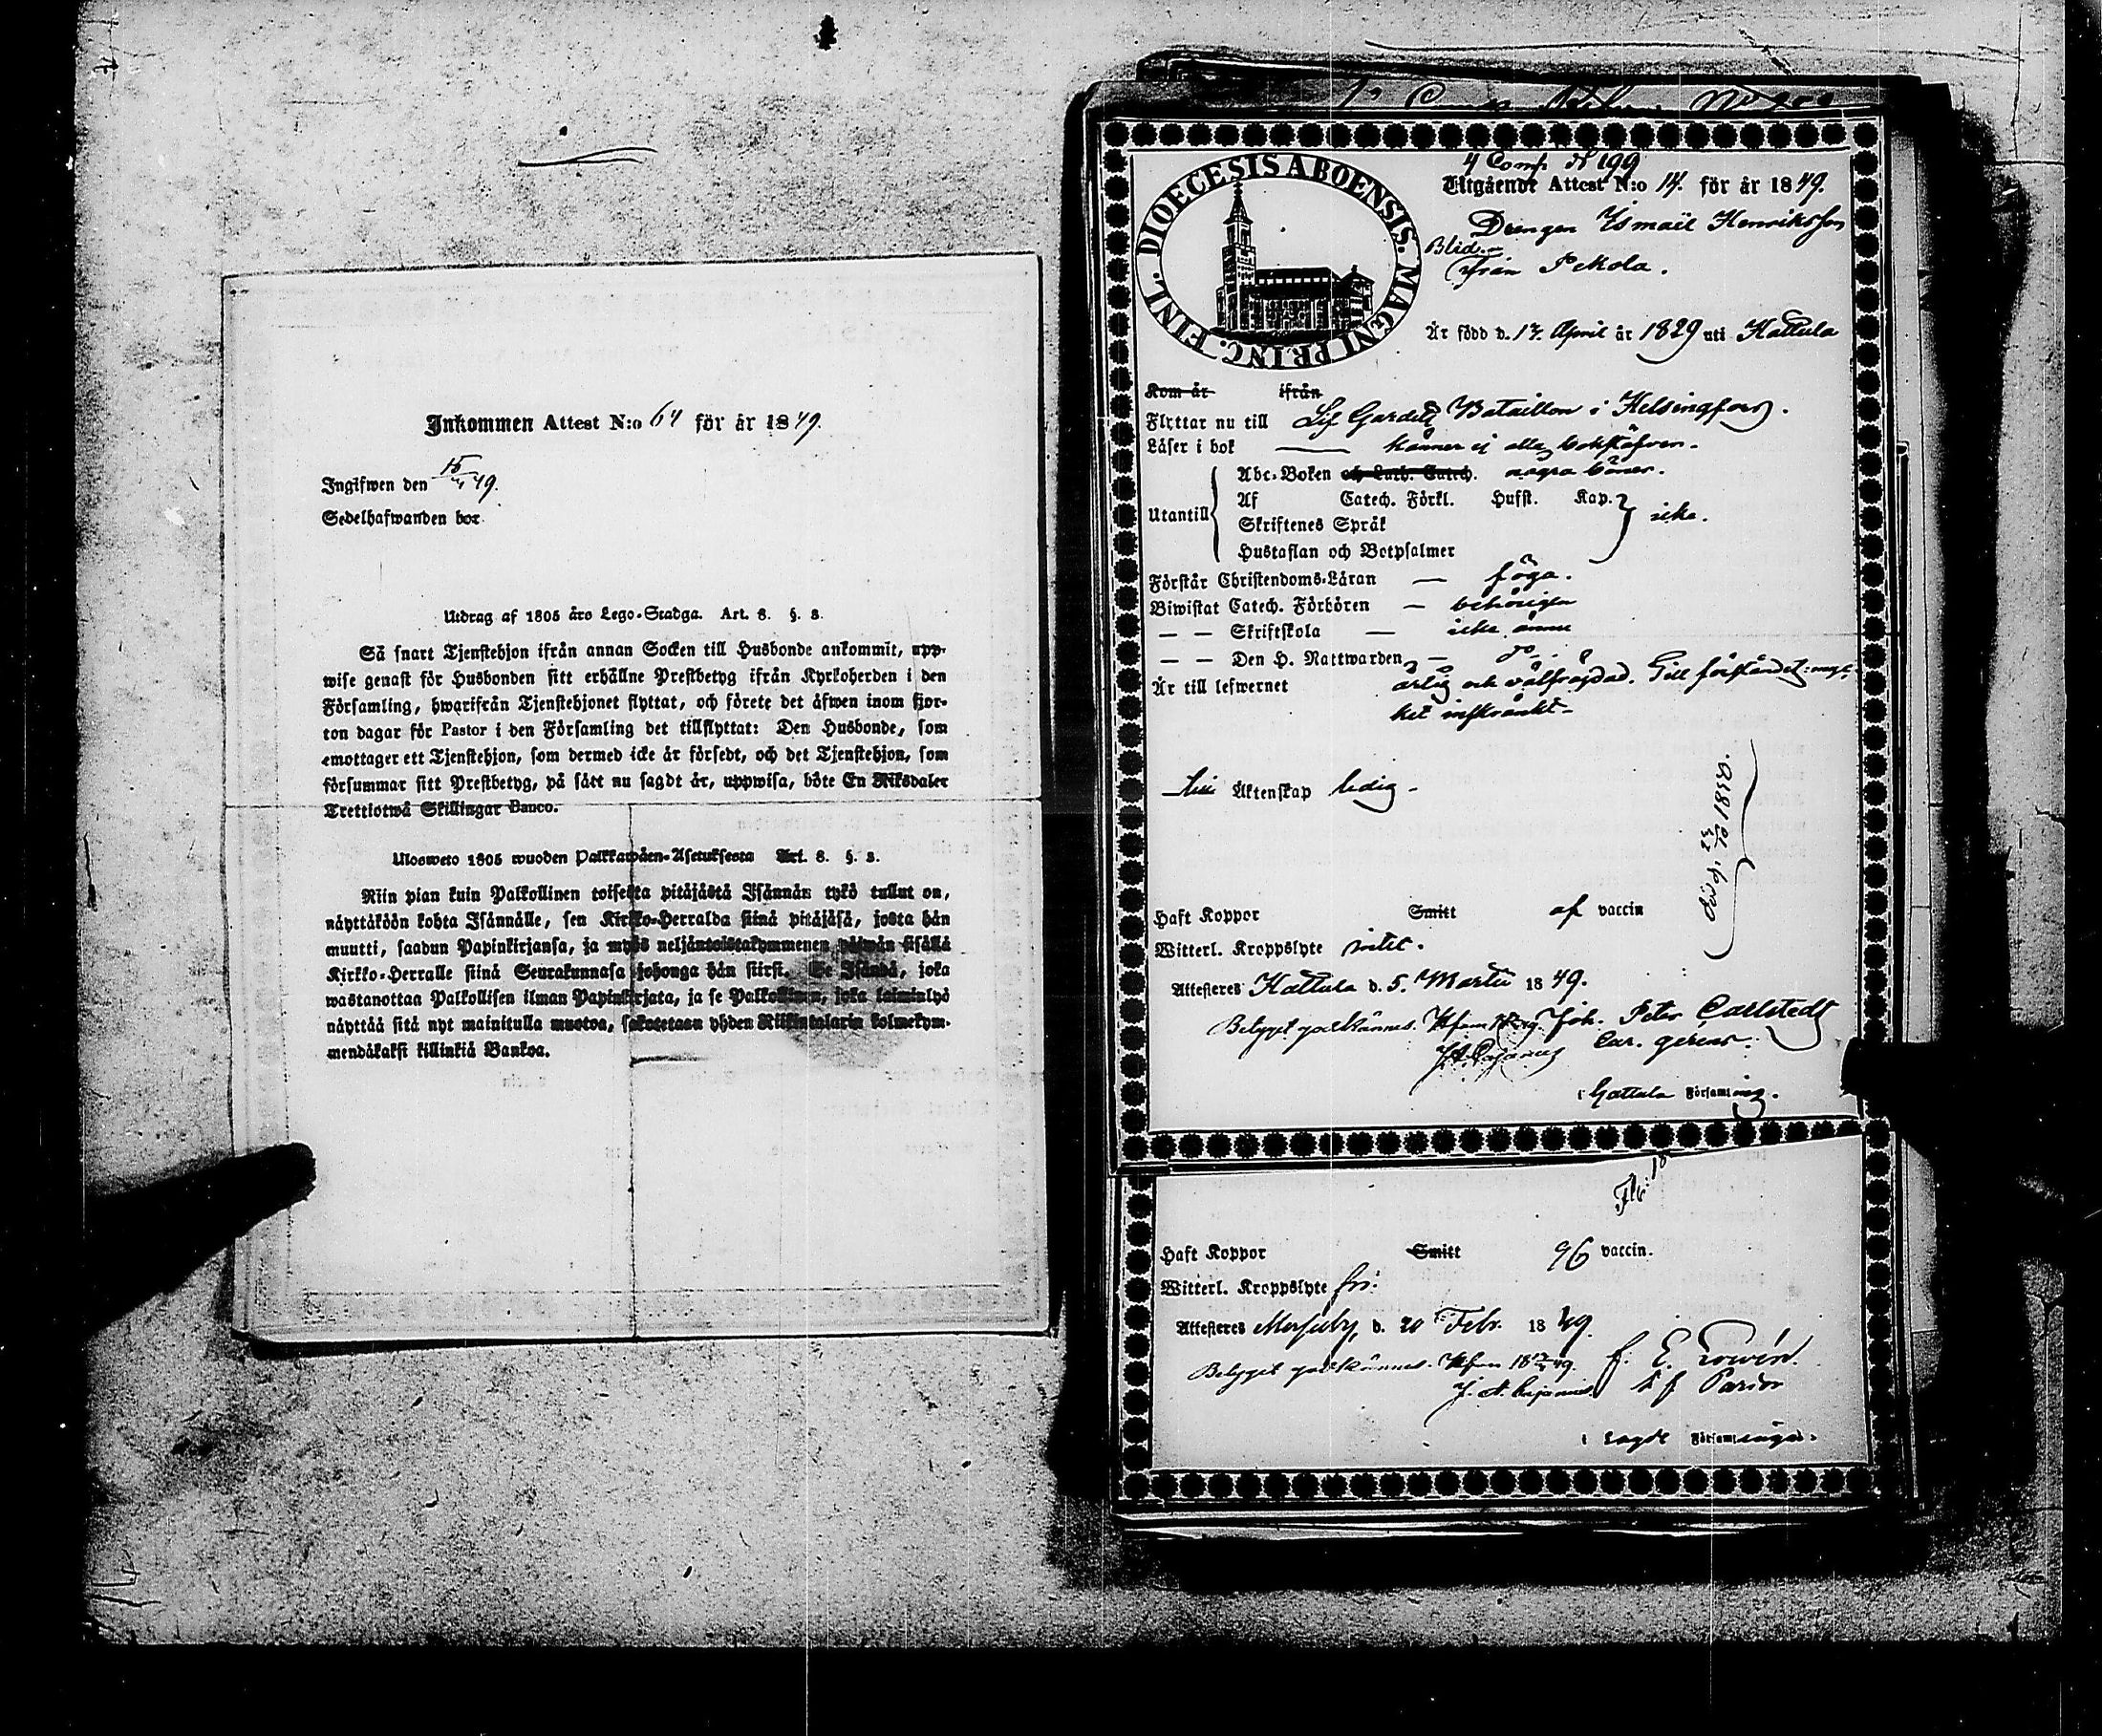 Inkommen Attest N:o 64 för år 1849.
Ingifwen den 15/4 49.
Sedelhafwanden bor
Utdrag af 1805 års Lego-Stadga. Art. 8. §. 8.
Så snart Tjenstehjon ifrån annan Socken till Husbonde ankommit, upp-
wise genast för Husbonden sitt erhållne Prestbetyg ifrån Kyrkoherden i den
Församling, hwarifrån Tjenstehjonet flyttat, och förete det äfwen inom fjor-
ton dagar för Pastor i den Församling det tillflyttat: Den Husbonde, som
emottager ett Tjenstehjon, som dermed icke är försedt, och det Tjenstehjon, som
försummar sitt Prestbetyg, på sätt nu sagdt är, uppwisa, böte En Riksdaler
Trettiotwå Skillingar Banco.
Ulosweto 1805 wuoden Palkkawäen-Asetuksesta Art. 8. §. 8.
Niin pian kuin Palkollinen toisesta pitäjästä Isännän tykö tullut on,
näyttäköön kohta Isännälle, sen Kirkko-Herralda siinä pitäjäsä, josta hän
muutti, saadun Papinkirjansa, ja myös neljäntoistakymmenen päiwän sisällä
Kirkko-Herralle siinä Seurakunnasa johonga hän siirsi. Se Isändä, joka
wastanottaa Palkollisen ilman Papinkirjata, ja se Palkollinen, joka laiminlyö
näyttää sitä nyt mainitulla muotoa, sakotetaan yhden Riikintalarin kolmekym-
mendäkaksi killinkiä Bankoa.
DIOECESIS ABOENSIS. MAGNI PRINC. FINL.
4 Comp. N 199
Utgående Attest N:o 14. för år 1849.
Drengen Ismaël Henriksson
Blid
från Pekola.
Är född d. 17. April år 1829 uti Hattula
Kom år ifrån
Flyttar nu till Lif Gardets Bataillon i Helsingfors.
Läser i bok känner ej alla bokstäfver.
Utantill Abc-Boken och Luth. Catech. några böner.
Af Catech. Förkl. Husst. Kap. icke.
Skriftenes Språk
Hustaflan och Botpsalmer
Förstår Christendoms-Läran — föga.
Biwistat Catech. Förhören — behörigen
— — Skriftskola — icke ännu
— — Den H. Nattwarden — do
Är till lefwernet ärlig och välfrägdad. Till förståndet myc-
ket inskränkt
till Äktenskap ledig
Haft Koppor Smitt af vaccin
Witterl. Kroppslyte intet.
Attesteres Hattula d. 5. Martii 1849.
Betyget godkännes. Joh. Peter Carlstedt
Cur. gerens.
i Hattula Församling.
Haft Koppor Smitt vaccin.
Witterl. Kroppslyte fri.
Attesteres d. 20 Febr. 1849.
Betyget godkännes.
i sagde Församlingar.